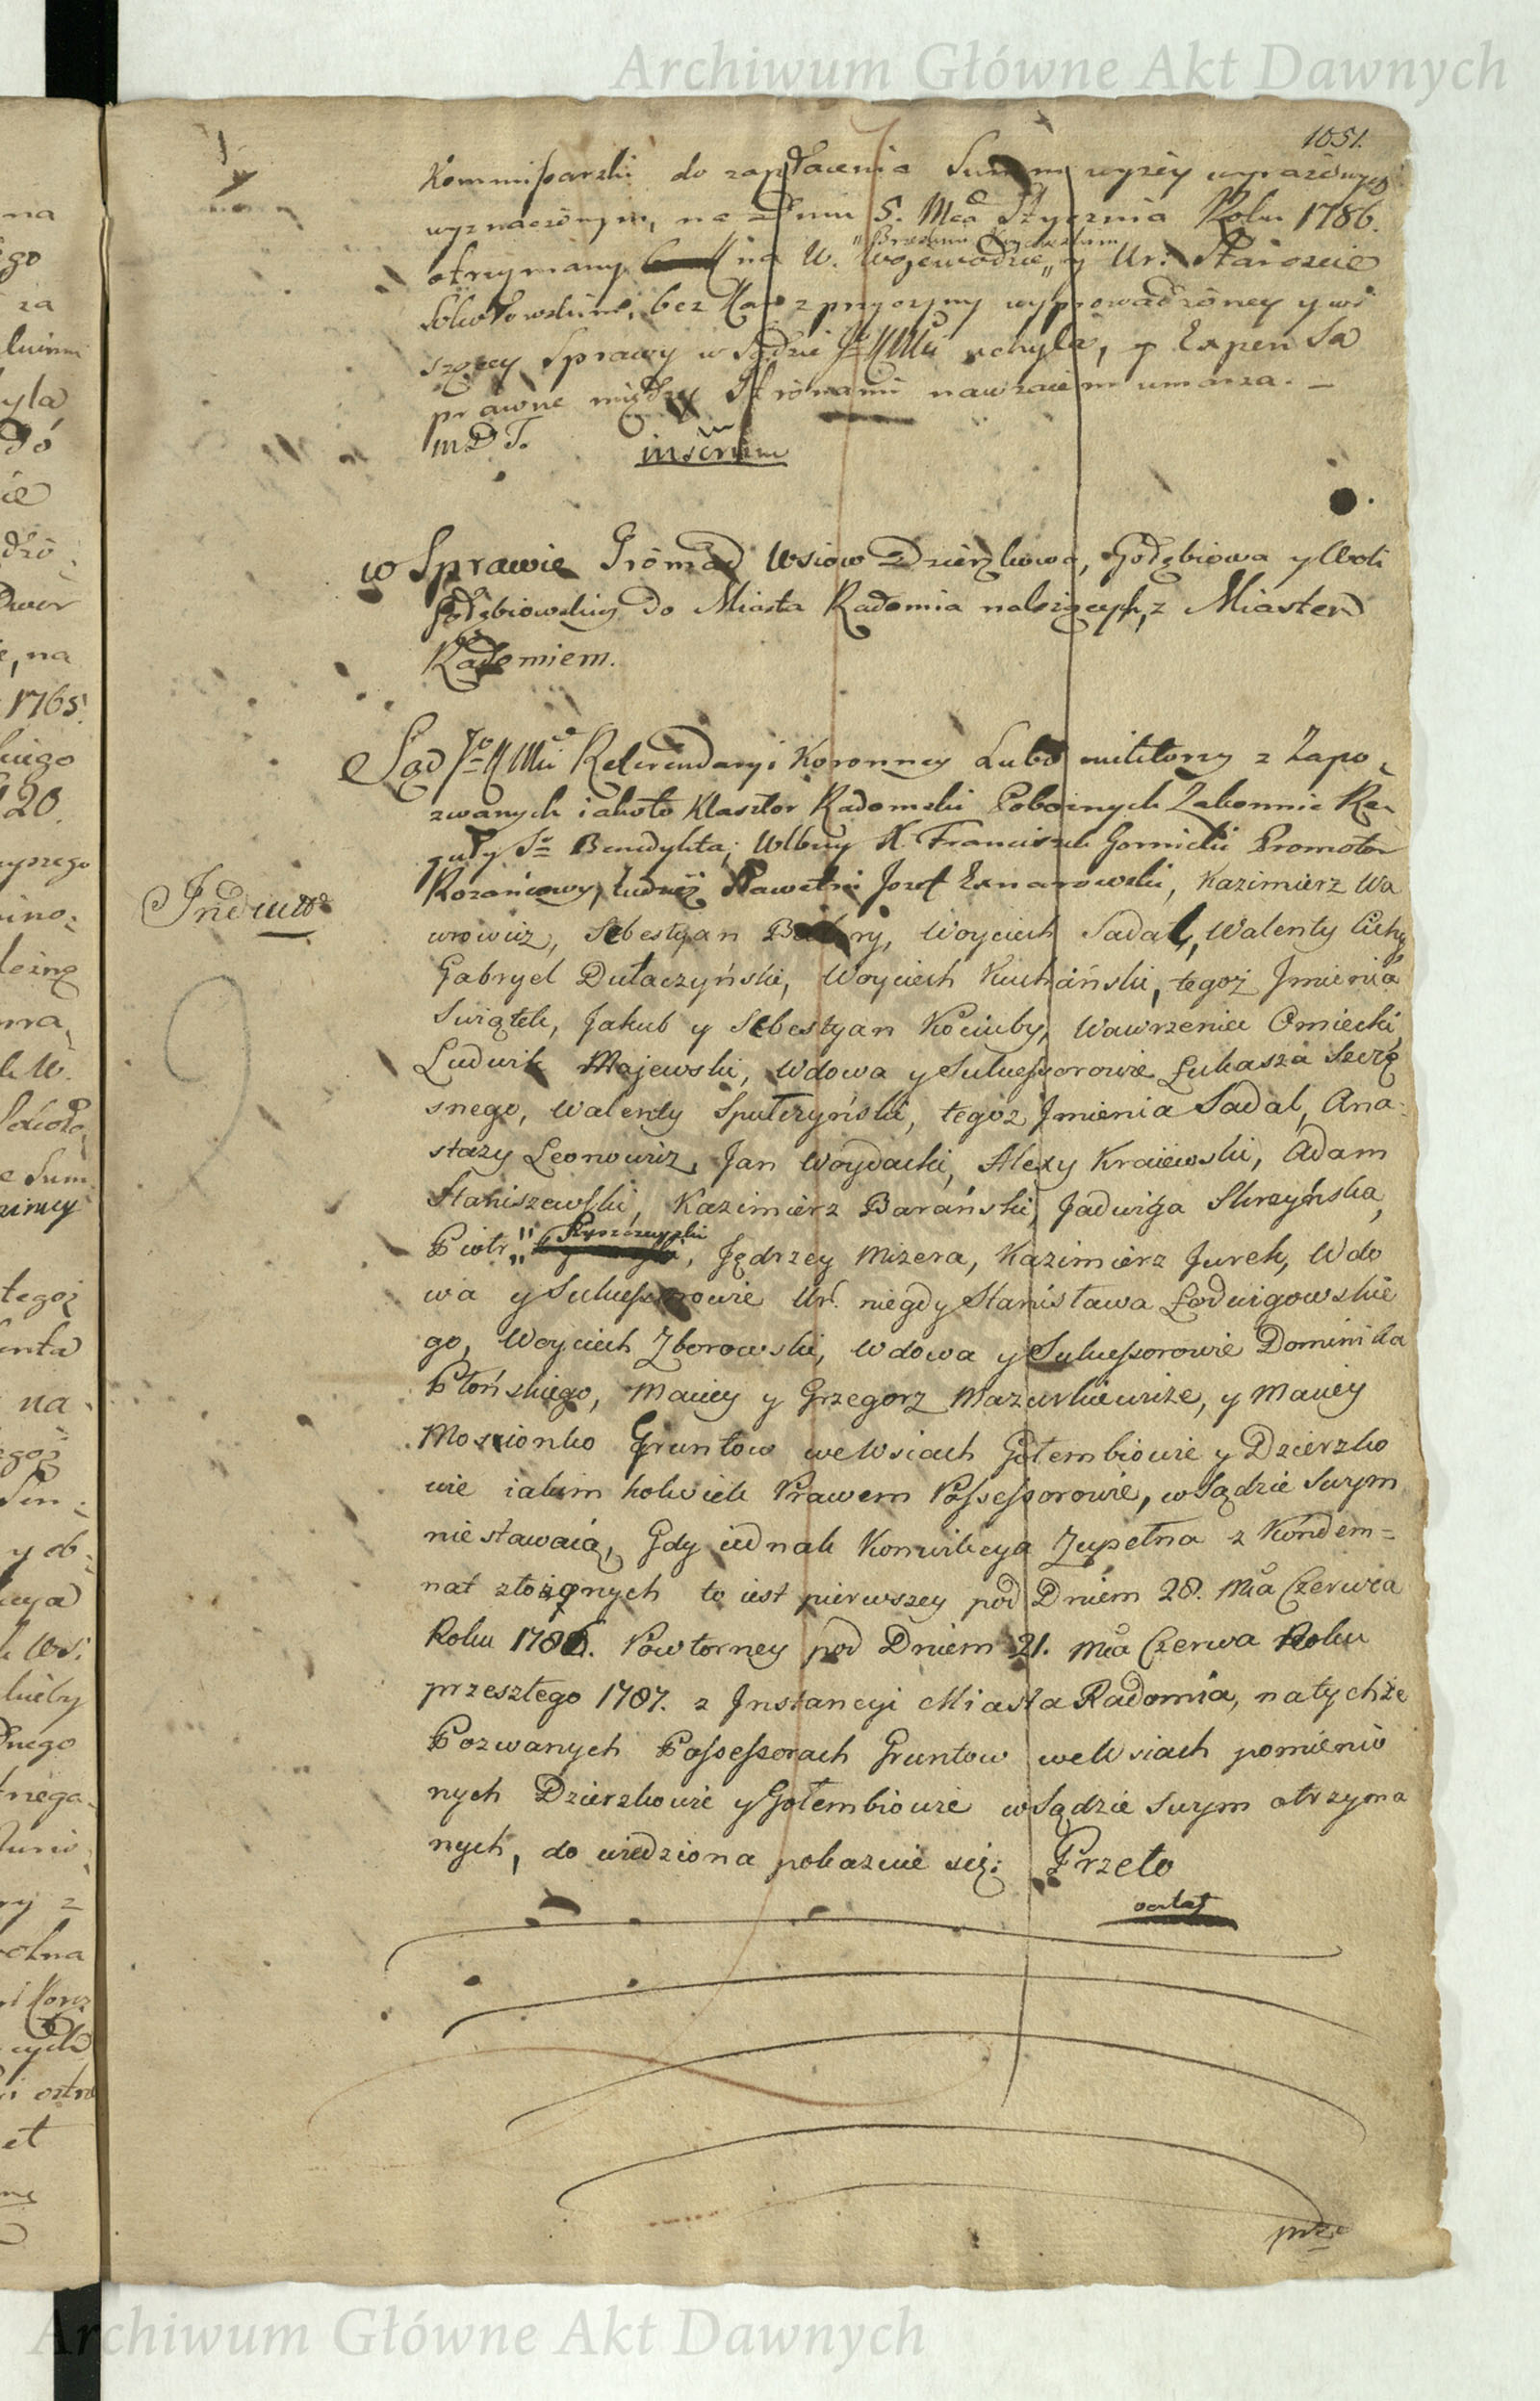 Archiwum Główne Akt Dawnych
1051.
Kommissarski do zapłacenia Summ wyżey wyrażonych
wyznaczonym, na Dniu 5. Mca Stycznia Roku 1786.
otrzymany na W. Wojewodzie y Ur. Staroscie
bez przyczyny wyprowadzoney y wi
szącey Sprawy w Sądzie JKMci uchyla, y Expensa
prawne między Stronami nawzaiem umarza. –
w Sprawie Gromad Wsiow Dzierzkowa, Gołębiowa y Woli
Gołębiowskiey do Miasta Radomia należących, z Miastem
Radomiem.
Sąd JKMci Referendaryi Koronney Lubo niktorzy z Zapo
zwanych iakoto Klasztor Radomski Pobożnych Zakonnic Re
guły Sgo Benedykta; Wlbny X. Franciszek Gornicki Promotor
Rożańcowy, tudzież Sławetni Jozef Exnarowski, Kazimierz Wa
wrowicz, Sebestyan Woyciech Sadal, Walenty Cichy
Gabryel Dułaczyński, Woyciech Kuchański, tegoż Jmienia
Swiątek, Jakub y Sebestyan Kościuby, Wawrzeniec Omiecki
Ludwik Majewski, Wdowa y Sukcessorowie Łukasza Szczę
snego, Walenty Spułczyński, tegoż Jmienia Sadal, Ana-
stazy Leonowicz, Jan Woydacki, Alexy Kraiewski, Adam
Staniszewski, Kazimierz Barański, Jadwiga Skrzyńska,
Piotr, Jędrzey Mizera, Kazimierz Jurek, Wdo
wa y Sukcessorowie Ur. niegdy Stanisława Łodwigowskie
go, Woyciech Zborowski, Wdowa y Sukcessorowie Dominika
Płońskiego, Maciey y Grzegorz Mazurkiewicze, y Maciey
Mosionko Gruntow we Wsiach Gołembiowie y Dzierzko
wie iakim kolwiek Prawem Possessorowie, w Sądzie Swym
nie stawaią, Gdy iednak Konwikcya Zupełna z Kondem=
nat złożonych to iest pierwszey pod Dniem 28. Mca Czerwca
Roku 1786. Powtorney pod Dniem 21. Mca Czerwca Roku
przeszłego 1787. z Jnstancyi Miasta Radomia, na tychże
Pozwanych Possessorach Gruntow we Wsiach pomienio
nych Dzierzkowie y Gołembiowie w Sądzie Swym otrzyma
nych, do wiedziona pokazuie się; Przeto
Archiwum Główne Akt Dawnych